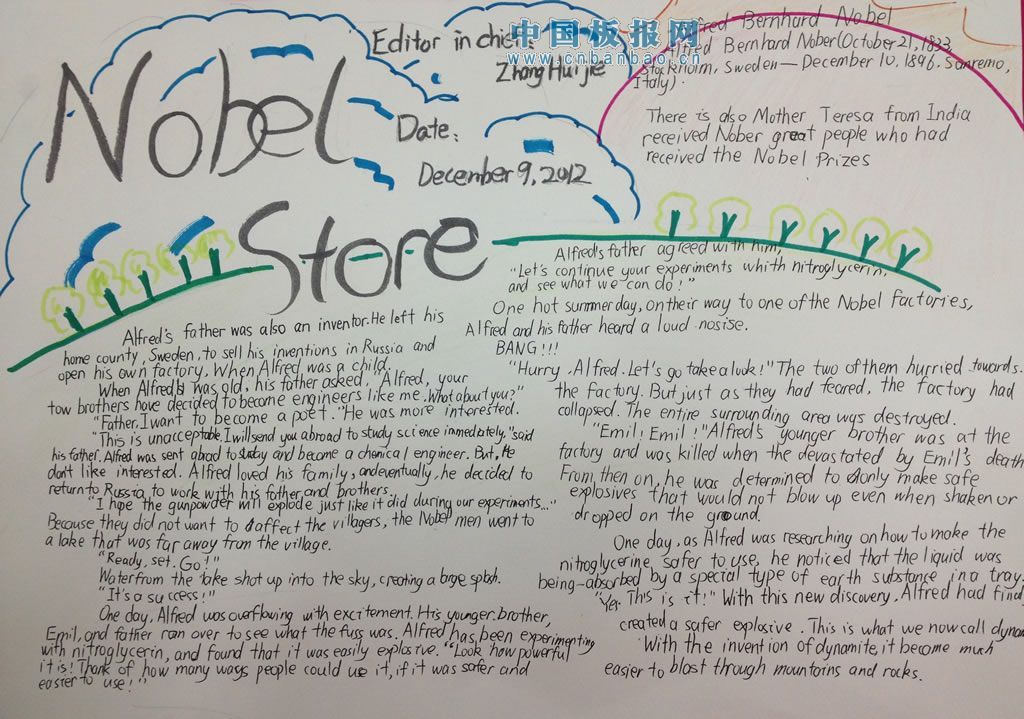 Nobel
Store
Editor in chief:
Zhang Huijie
Date:
December 9, 2012
中国板报网
www.cnbanbao.cn
Alfred Bernhard Nobel
Alfred Bernhard Nober(October 21, 1833,
Stockholm, Sweden—December 10, 1896. Sanremo,
Italy).
There is also Mother Teresa from India
received Nober great people who had
received the Nobel Prizes
Alfred's father was also an inventor. He left his
home county, Sweden, to sell his inventions in Russia and
open his own factory. When Alfred was a child.
When Alfred's was old, his father asked, "Alfred, your
tow brothers have decided to become engineers like me. What about you?"
"Father, I want to become a poet." He was more interested.
"This is unacceptable. I will send you abroad to study science immediately," said
his father. Alfred was sent abrad to study and become a chenical engineer. But, He
don't like interested. Alfred loved his family, and eventually, he decided to
return to Russia, to work with his father and brothers.
"I hipe the gunpowder will explode just like it did during our experiments..."
Because they did not want to affect the villagers, the Nobel men went to
a lake that was far away from the village.
"Ready, set. Go!"
Water from the lake shot up into the sky, creating a large splash.
"It's a success!"
One day, Alfred was overflowing with excitement. His younger brother,
Emil, and father ran over to see what the fuss was. Alfred has been experimenting
with nitroglycerin, and found that it was easily explosive. "Look how powerful
it is! Thank of how many ways people could use it, if it was safer and
easier to use!"
Alfred's father agreed with him,
"Let's continue your experiments whith nitroglycerin,
and see what we can do!"
One hot summer day, on their way to one of the Nobel factories,
Alfred and his father heard a loud nosise.
BANG!!!
"Hurry, Alfred. Let's go take a look!" The two of them hurried towards
the factory. But just as they had feared, the factory had
collapsed. The entire surrounding area was destroyed.
"Emil! Emil!" Alfred's younger brother was at the
factory and was killed when the devastated by Emil's death
From then on, he was determined to only make safe
explosives that would not blow up even when shaken or
dropped on the ground.
One day, as Alfred was researching on how to make the
nitroglycerine safer to use, he noticed that the liquid was
being-absorbed by a special type of earth substance in a tray.
"Yer. This is it!" With this new discovery, Alfred had find
created a safer explosive. This is what we now call dynam
With the invention of dynamite, it become much
easier to blast through mountains and rocks.